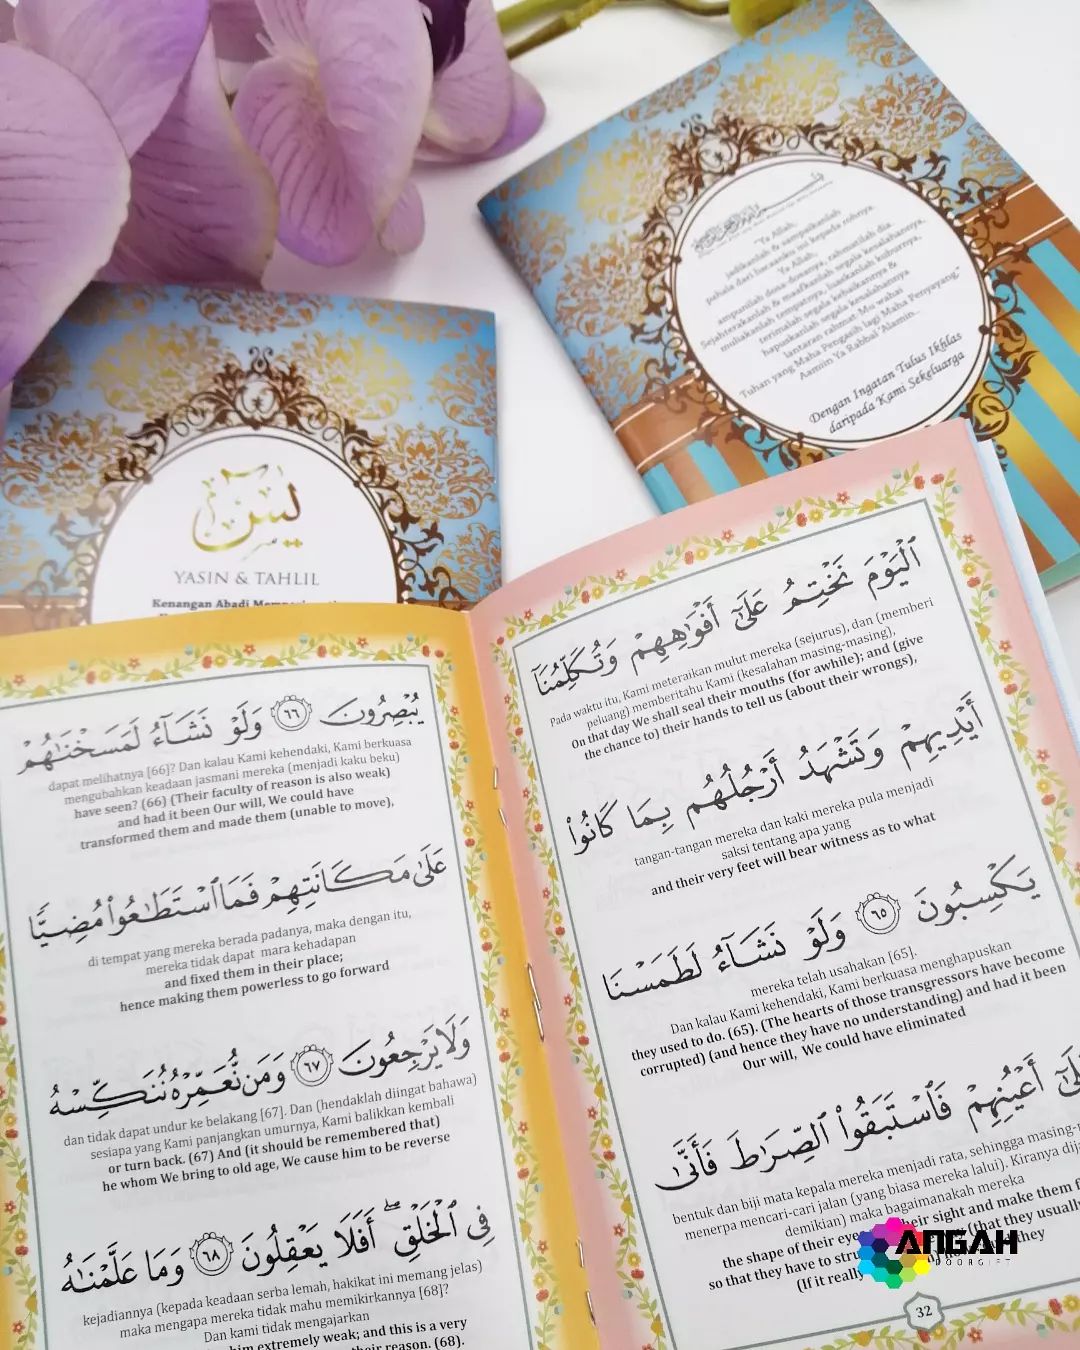 "Ya Allah,
jadikanlah & sampaikanlah
pahala dari bacaanku ini kepada rohnya.
Ya Allah,
ampunilah dosa-dosanya, rahmatilah dia.
Sejahterakanlah & maafkanlah segala kesalahannya,
muliakanlah tempatnya, luaskanlah kuburnya,
terimalah segala kebaikannya &
hapuskanlah segala kesalahannya
lantaran rahmat Mu wahai
Tuhan yang Maha Pengasih lagi Maha Penyayang."
Aamiin Ya Rabbal 'Alamin...
Dengan Ingatan Tulus Ikhlas
daripada Kami Sekeluarga
يسٓ
YASIN & TAHLIL
Kenangan Abadi
ٱلْيَوْمَ نَخْتِمُ عَلَىٰٓ أَفْوَٰهِهِمْ وَتُكَلِّمُنَآ
Pada waktu itu, Kami meteraikan mulut mereka (sejurus), dan (memberi
peluang) memberitahu Kami (kesalahan masing-masing),
On that day We shall seal their mouths (for awhile); and (give
the chance to) their hands to tell us (about their wrongs),
أَيْدِيهِمْ وَتَشْهَدُ أَرْجُلُهُم بِمَا كَانُوا۟
tangan-tangan mereka dan kaki mereka pula menjadi
saksi tentang apa yang
and their very feet will bear witness as to what
يَكْسِبُونَ ٦٥ وَلَوْ نَشَآءُ لَطَمَسْنَا
mereka telah usahakan [65].
Dan kalau Kami kehendaki, Kami berkuasa menghapuskan
they used to do. (65). (The hearts of those transgressors have become
corrupted) (and hence they have no understanding) and had it been
Our will, We could have eliminated
أَعْيُنِهِمْ فَٱسْتَبَقُوا۟ ٱلصِّرَٰطَ فَأَنَّىٰ
bentuk dan biji mata kepala mereka menjadi rata, sehingga
menerpa mencari-cari jalan (yang biasa mereka lalui). Kiranya
demikian) maka bagaimanakah mereka
the shape of their their sight and make them
so that they have to (that they usually
(If it really they
32
يُبْصِرُونَ ٦٦ وَلَوْ نَشَآءُ لَمَسَخْنَٰهُمْ
dapat melihatnya [66]? Dan kalau Kami kehendaki, Kami berkuasa
mengubahkan keadaan jasmani mereka (menjadi kaku beku)
have seen? (66) (Their faculty of reason is also weak)
and had it been Our will, We could have
transformed them and made them (unable to move),
عَلَىٰ مَكَانَتِهِمْ فَمَا ٱسْتَطَٰعُوا۟ مُضِيًّا
di tempat yang mereka berada padanya, maka dengan itu,
mereka tidak dapat mara kehadapan
and fixed them in their place;
hence making them powerless to go forward
وَلَا يَرْجِعُونَ ٦٧ وَمَن نُّعَمِّرْهُ نُنَكِّسْهُ
dan tidak dapat undur ke belakang [67]. Dan (hendaklah diingat bahawa)
sesiapa yang Kami panjangkan umurnya, Kami balikkan kembali
or turn back. (67) And (it should be remembered that)
he whom We bring to old age, We cause him to be reverse
فِى ٱلْخَلْقِ ۖ أَفَلَا يَعْقِلُونَ ٦٨ وَمَا عَلَّمْنَٰهُ
kejadiannya (kepada keadaan serba lemah, hakikat ini memang jelas)
maka mengapa mereka tidak mahu memikirkannya [68]?
Dan kami tidak mengajarkan
him extremely weak; and this is a very
their reason. (68).
ANGAH
DOORGIFT